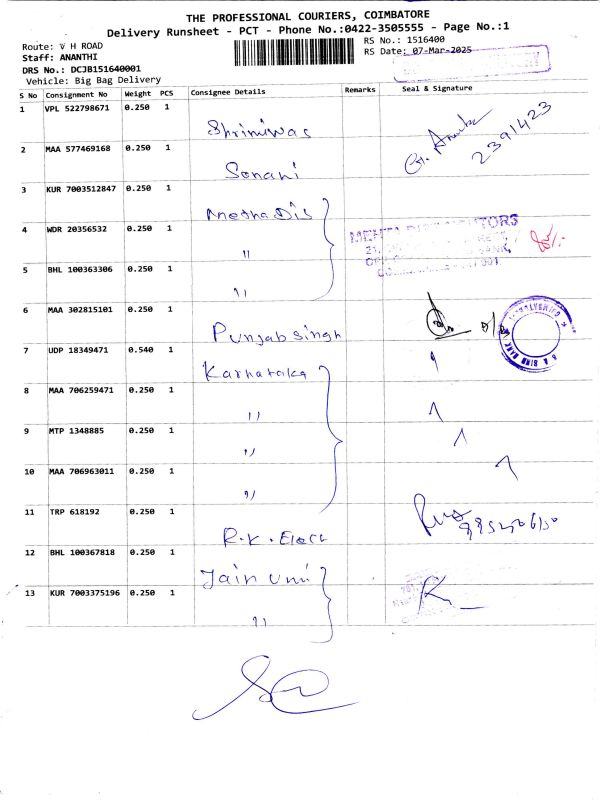 THE PROFESSIONAL COURIERS, COIMBATORE
Delivery Runsheet - PCT - Phone No.:0422-3505555 - Page No.:1
Route: V H ROAD
RS No.: 1516400
Staff: ANANTHI
RS Date: 07-Mar-2025
DRS No.: DCJB151640001
Vehicle: Big Bag Delivery
S No Consignment No Weight PCS Consignee Details Remarks Seal & Signature
1 VPL 522798671 0.250 1
Shriniwas
2391423
2 MAA 577469168 0.250 1
Sonani
3 KUR 7003512847 0.250 1
Metha Dis
4 WDR 20356532 0.250 1
"
5 BHL 100363306 0.250 1
"
6 MAA 302815101 0.250 1
Punjab singh
7 UDP 18349471 0.540 1
Karnataka
8 MAA 706259471 0.250 1
"
9 MTP 1348885 0.250 1
"
10 MAA 706963011 0.250 1
"
11 TRP 618192 0.250 1
R.K. Elect
12 BHL 100367818 0.250 1
Jain uni
13 KUR 7003375196 0.250 1
"